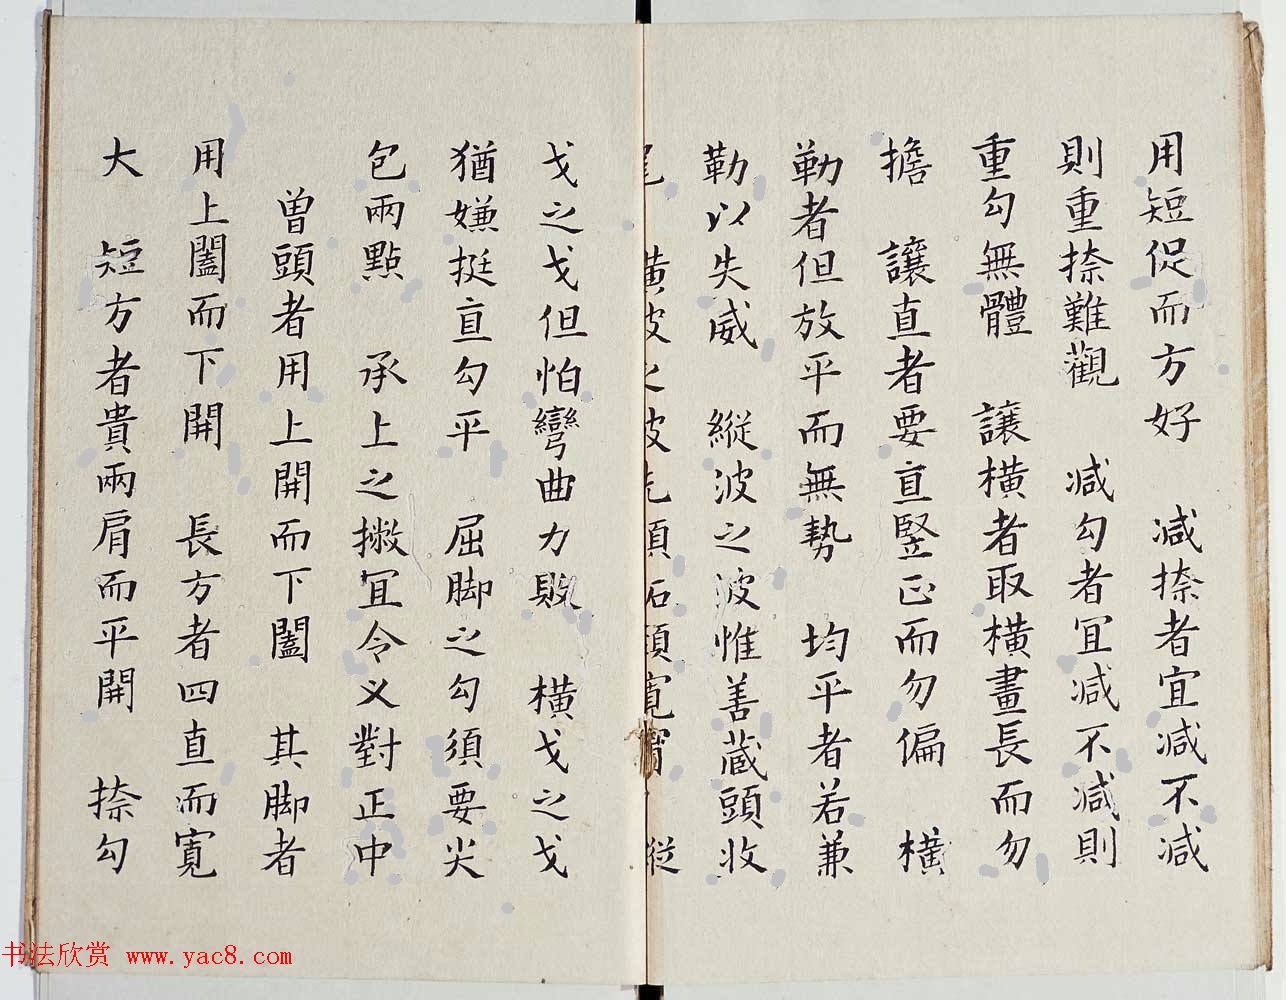 用短促而方好　減捺者宜減不減
則重捺難觀　減勾者冝減不減則
重勾無體　讓橫者取橫畫長而勿
擔　讓直者要直竪正而勿偏　橫
勒者但放平而無勢　均平者若兼
勒以失威　縱波之波惟善蔵頭收
尾　橫波之波先須拓頸寬　縱
戈之戈但怕彎曲力敗　橫戈之戈
猶嫌挺直勾平　屈脚之勾須要尖
包兩點　承上之撇冝令乂對正中
曽頭者用上開而下闔　其脚者
用上闔而下開　長方者四直而寛
大　短方者貴兩肩而平開　捺勾
书法欣赏 www.yac8.com